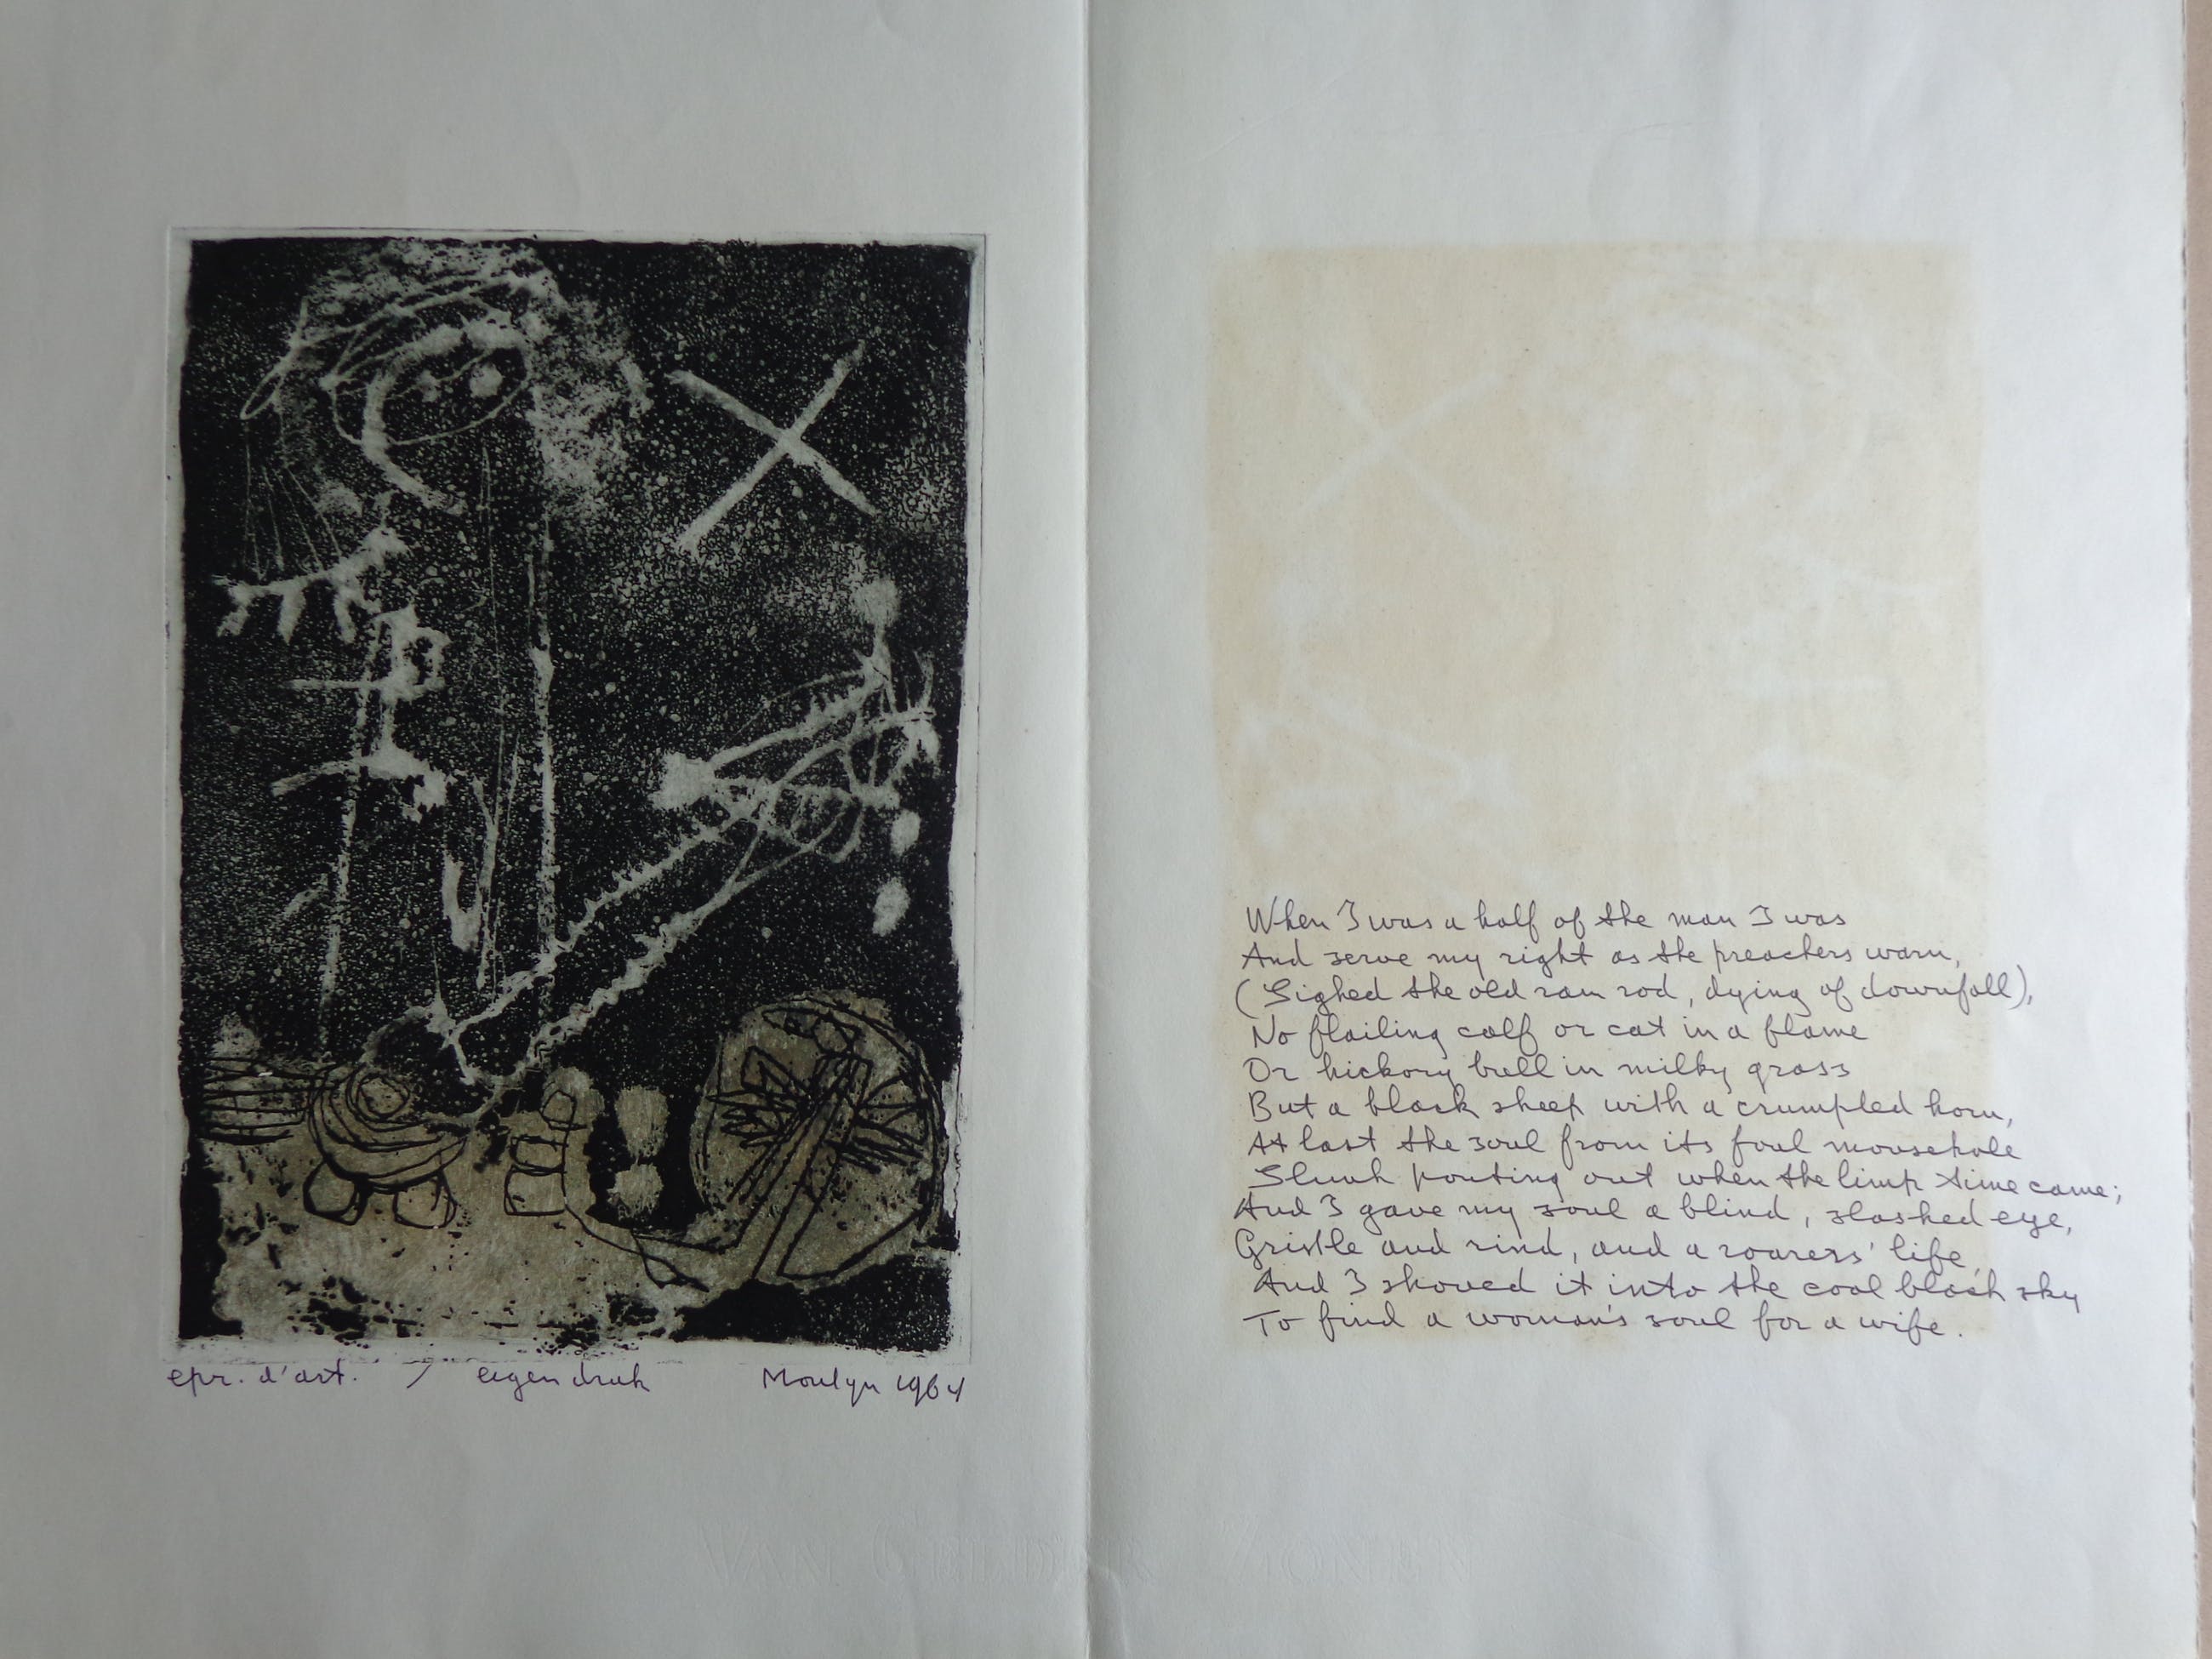 epr. d'art. / eigen druk Moulyn 1964
When I was a half of the man I was
And serve my right as the preachers warn,
(Sighed the old ram rod, dying of downfall),
No flailing calf or cat in a flame
Or hickory bull in milky grass
But a black sheep with a crumpled horn,
At last the soul from its foul mousehole
Slunk pouting out when the limp time came;
And I gave my soul a blind, slashed eye,
Gristle and rind, and a roarers' life,
And I shoved it into the coal black sky
To find a woman's soul for a wife.
VAN GELDER ZONEN